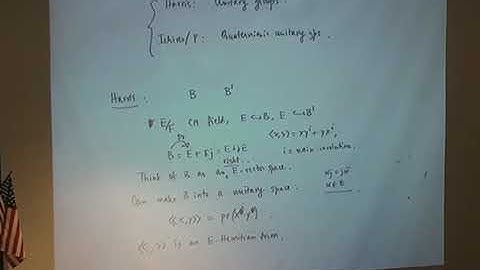 Harris: Unitary groups.
Ichino/P: Quaternionic unitary gps.
Harris: B B'
E/F CM field, E↪B, E↪B'
⟨x,y⟩ = xy^i + yx^i,
B = E + Ej = E + jE i = main involution.
right
Think of B as an E-vector space. xj = jx̄
x ∈ E
Can make B into a unitary space.
⟨⟨x,y⟩⟩ = pr(x y)
⟨⟨ , ⟩⟩ is an E-Hermitian form.